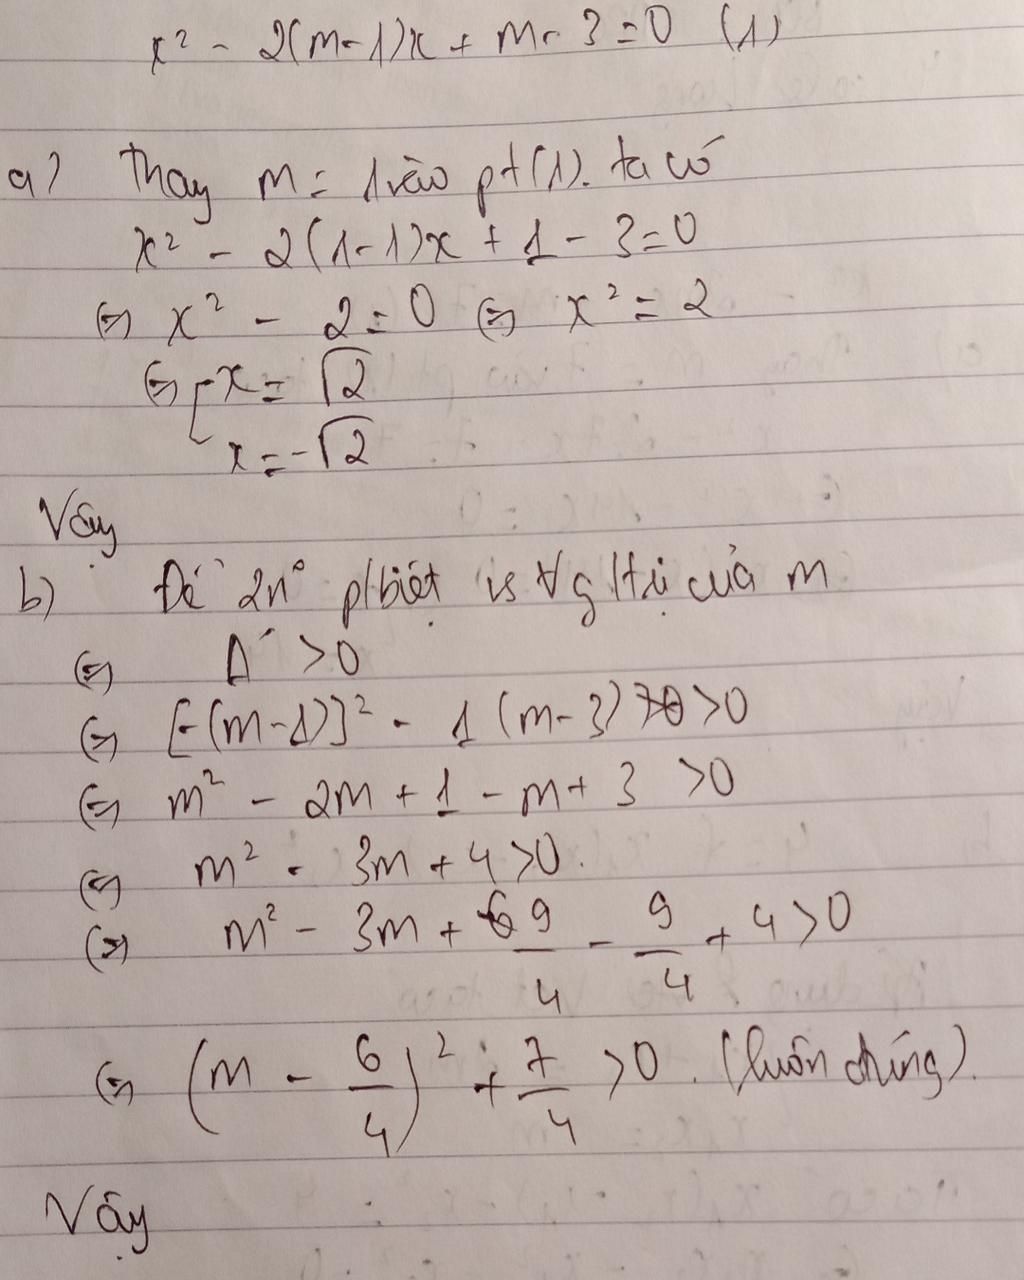 x² - 2(m-1)x + m - 3 = 0 (1)
a) Thay m = 1 vào pt(1). ta có
x² - 2(1-1)x + 1 - 3 = 0
⇔ x² - 2 = 0 ⇔ x² = 2
⇔ [ x = √2
x = -√2
Vậy
b) Để 2n° p/biệt vs ∀ g/trị của m
⇔ Δ' > 0
⇔ [-(m-1)]² - 1(m-3) > 0
⇔ m² - 2m + 1 - m + 3 > 0
⇔ m² - 3m + 4 > 0.
⇔ m² - 3m + 9/4 - 9/4 + 4 > 0
⇔ (m - 6/4)² + 7/4 > 0. (luôn đúng).
Vậy